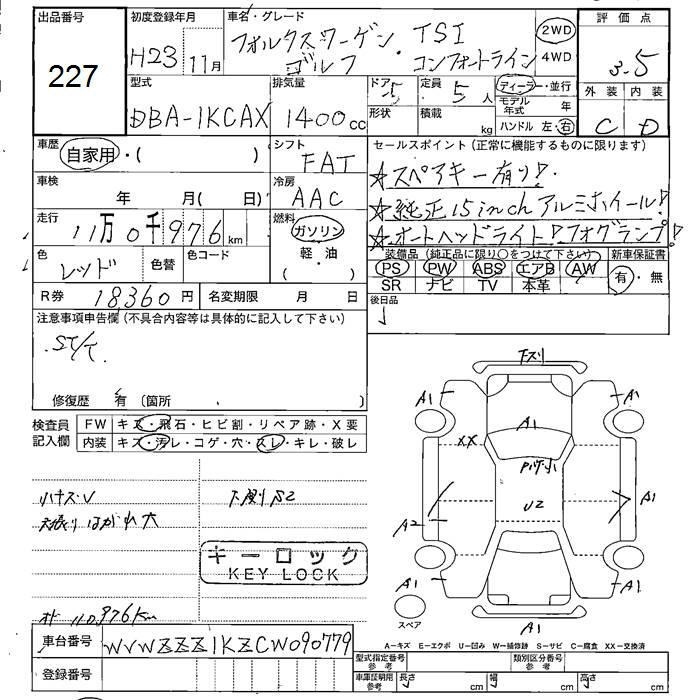 出品番号
227
初度登録年月
H23 11月
車名・グレード
フォルクスワーゲン・ TSI
ゴルフ コンフォートライン
2WD
4WD
評価点
3.5
外装 内装
C D
型式
DBA-1KCAX
排気量
1400cc
ドア
5
形状
定員
5人
積載
kg
ディーラー・並行
モデル年式 年
ハンドル 左・右
車歴
自家用・( )
シフト
FAT
セールスポイント (正常に機能するものに限ります)
☆スペアキー有り!
☆純正15inchアルミホイール!
☆オートヘッドライト!フォグランプ!
車検
年 月( 日)
冷房
AAC
走行
11万0千976km
燃料
ガソリン
軽・油
( )
色
レッド
色替
色コード
装備品 (純正品に限り○をつけて下さい)
PS PW ABS エアB AW
SR ナビ TV 本革
新車保証書
有・無
R券 18360円
名変期限 月 日
後日品
注意事項申告欄 (不具合内容等は具体的に記入して下さい)
修復歴 有 (箇所 )
検査員記入欄
FW キズ・飛石・ヒビ割・リペア跡・X要
内装 キズ・汚レ・コゲ・穴・スレ・キレ・破レ
ハナズレ
天張りはがれ大
下廻りS2
キーロック
KEY LOCK
110,976km
下スリ
A1 A1
A1
XX
U2
A2
A1
A1 A1
A1
スペア
A－キズ E－エクボ U－凹み W－補修跡 S－サビ C－腐食 XX－交換済
車台番号
WVWZZZ1KZCW090779
登録番号
型式指定番号 参考
類別区分番号 参考
車庫証明用 参考
長さ cm
幅 cm
高さ cm